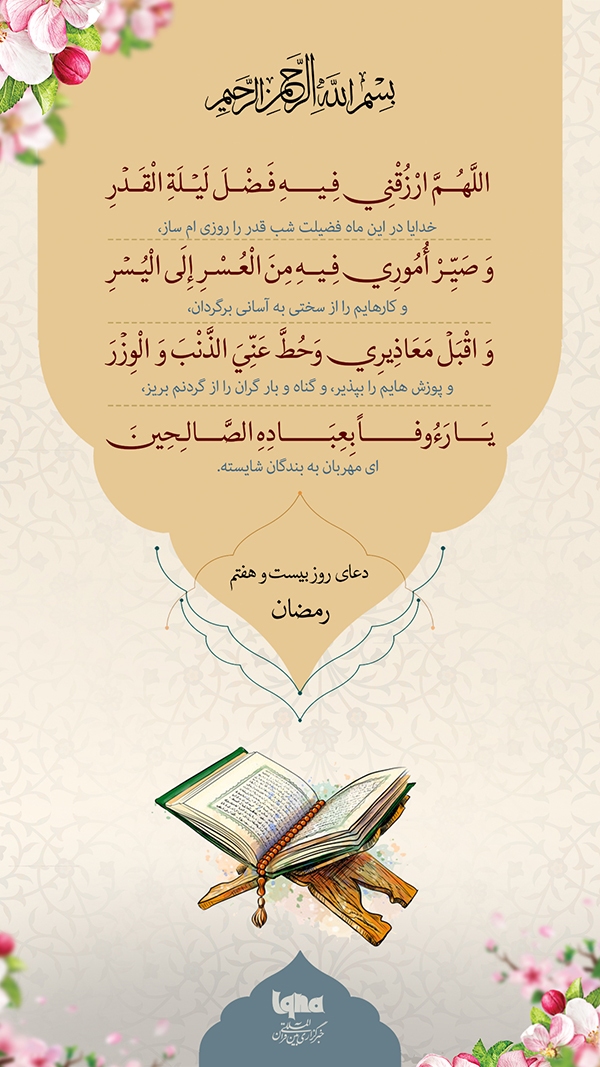 بِسْمِ اللَّهِ الرَّحْمنِ الرَّحِيمِ
اللَّهُمَّ ارْزُقْنِي فِيهِ فَضْلَ لَيْلَةِ الْقَدْرِ
خدایا در این ماه فضیلت شب قدر را روزی ام ساز،
وَ صَيِّرْ أُمُورِي فِيهِ مِنَ الْعُسْرِ إِلَى الْيُسْرِ
و کارهایم را از سختی به آسانی برگردان،
وَ اقْبَلْ مَعَاذِيرِي وَحُطَّ عَنِّيَ الذَّنْبَ وَ الْوِزْرَ
و پوزش هایم را بپذیر، و گناه و بار گران را از گردنم بریز،
يَا رَءُوفاً بِعِبَادِهِ الصَّالِحِينَ
ای مهربان به بندگان شایسته.
دعای روز بیست و هفتم
رمضان
iqna
خبرگزاری بین المللی قرآن